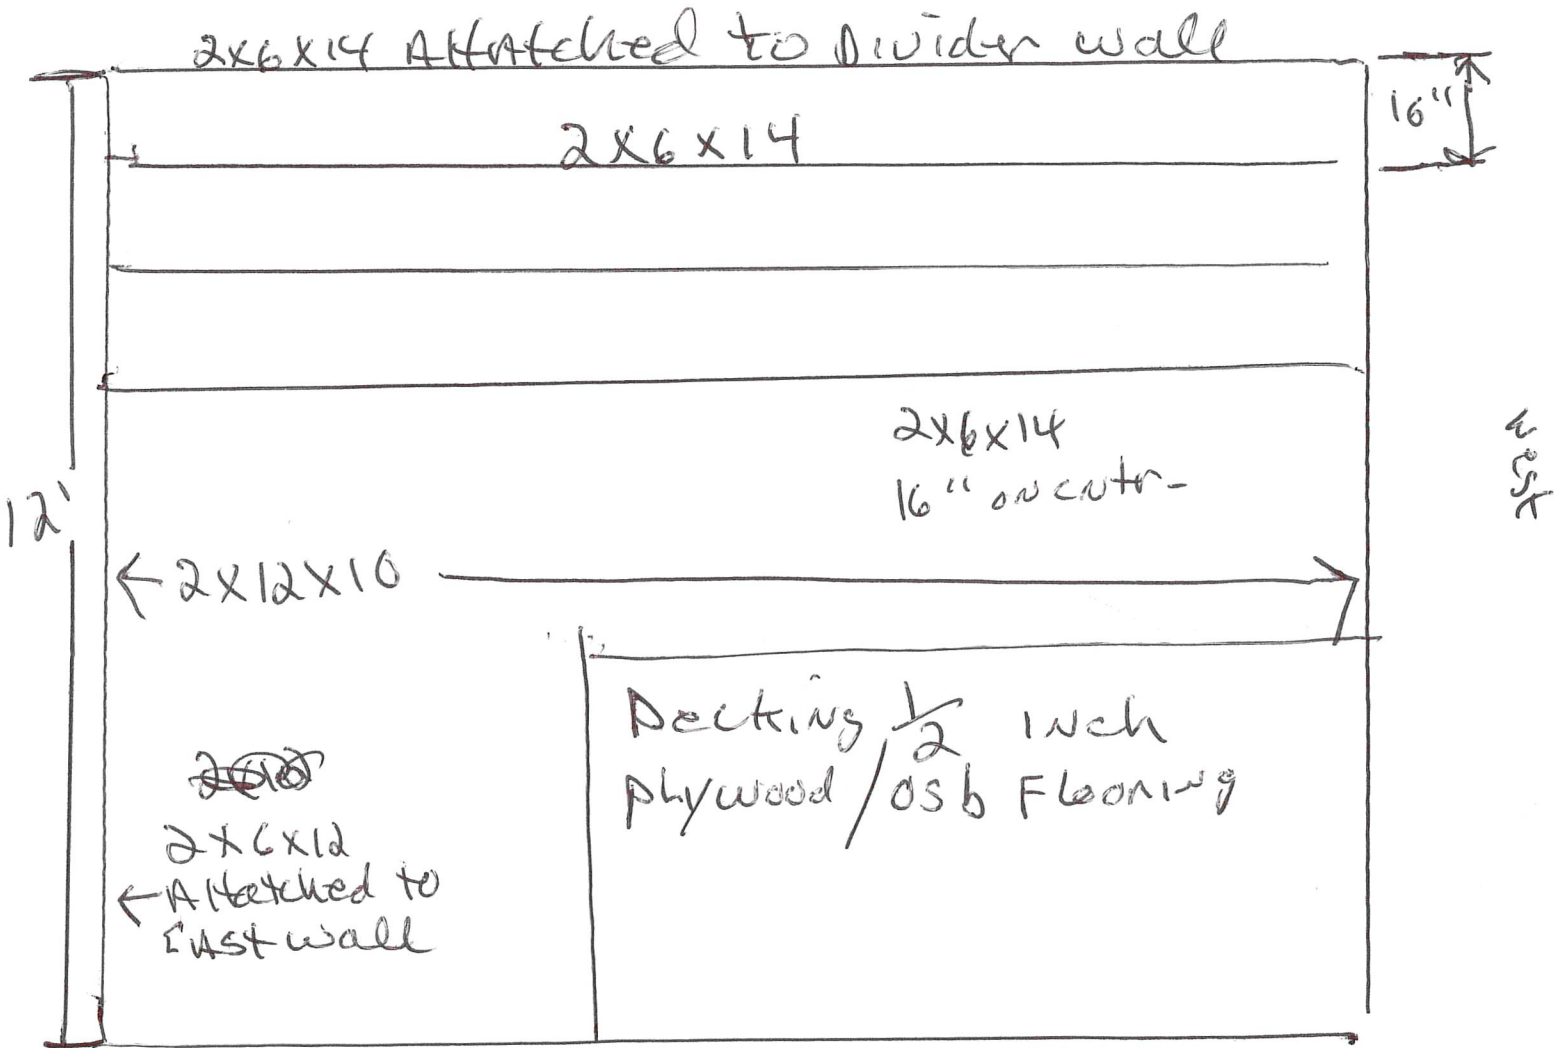 2x6x14 Attatched to Divider wall
16"
2x6x14
2x6x14
16" on cntr-
west
12'
←2x12x10
Decking 1/2 inch
plywood/osb Flooring
2x6x12
←Attatched to
East wall